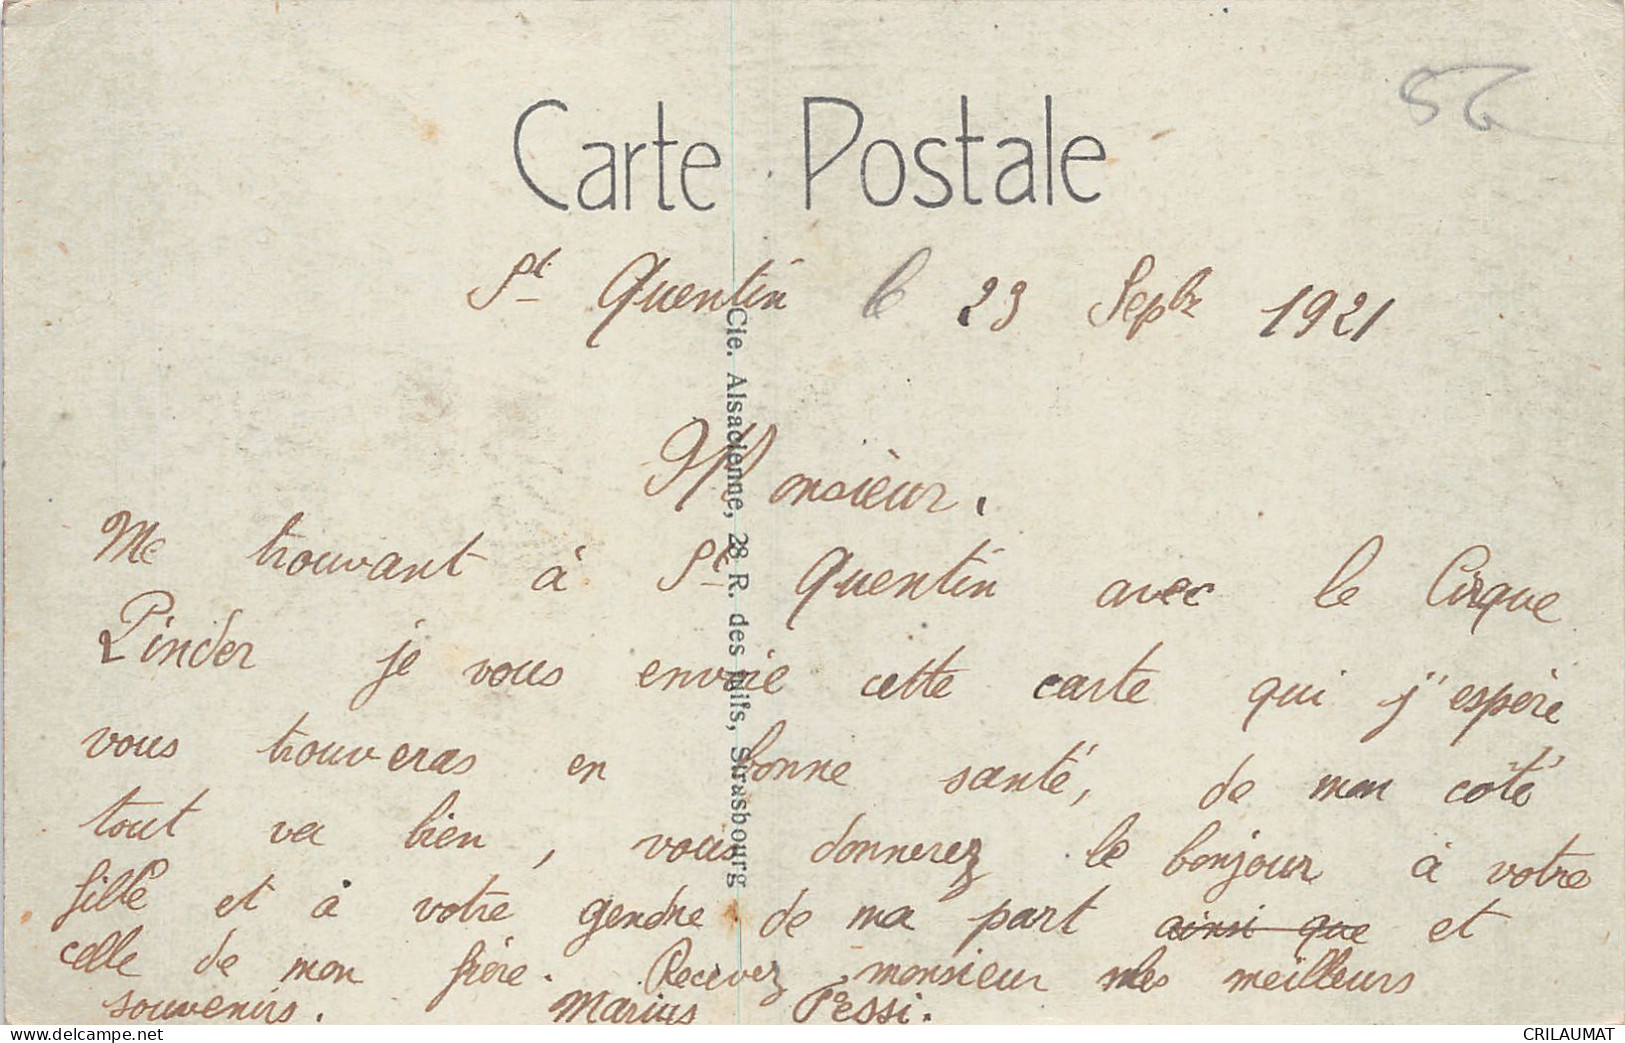 56
Carte Postale
St Quentin le 23 Sepbr 1921
Cie. Alsacienne, 28 R. des Juifs, Strasbourg
Monsieur.
Me trouvant à St Quentin avec le Cirque
Pinder je vous envoie cette carte qui j'espère
vous trouveras en bonne santé, de mon côté
tout va bien, vous donnerez le bonjour à votre
fille et à votre gendre de ma part ainsi que et
celle de mon frère. Recevez monsieur mes meilleurs
souvenirs. Marius Pessi.
www.delcampe.net
CRILAUMAT